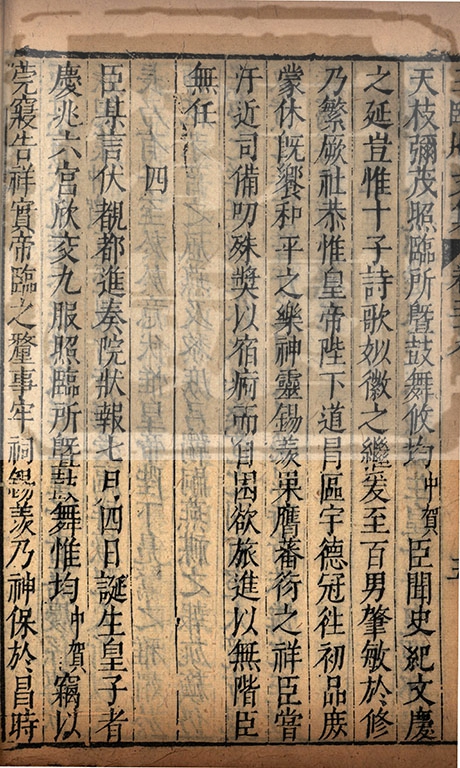 天枝彌茂照臨所暨鼓舞攸均中賀臣聞史紀文慶
之延豈惟十子詩歌姒徽之繼爰至百男肇敏於修
乃繁厥社恭惟皇帝陛下道昌區宇德冠往初品庶
蒙休旣饗和平之樂神靈錫羡果膺蕃衍之祥臣嘗
汙近司備叨殊奬以宿痾而自困欲旅進以無階臣
無任
四
臣某言伏覩都進奏院狀報七月四日誕生皇子者
慶兆六宫欣交九服照臨所暨鼓舞惟均中賀竊以
莞寢告祥實帝臨之釐事牢祠錫羡乃神保於昌時